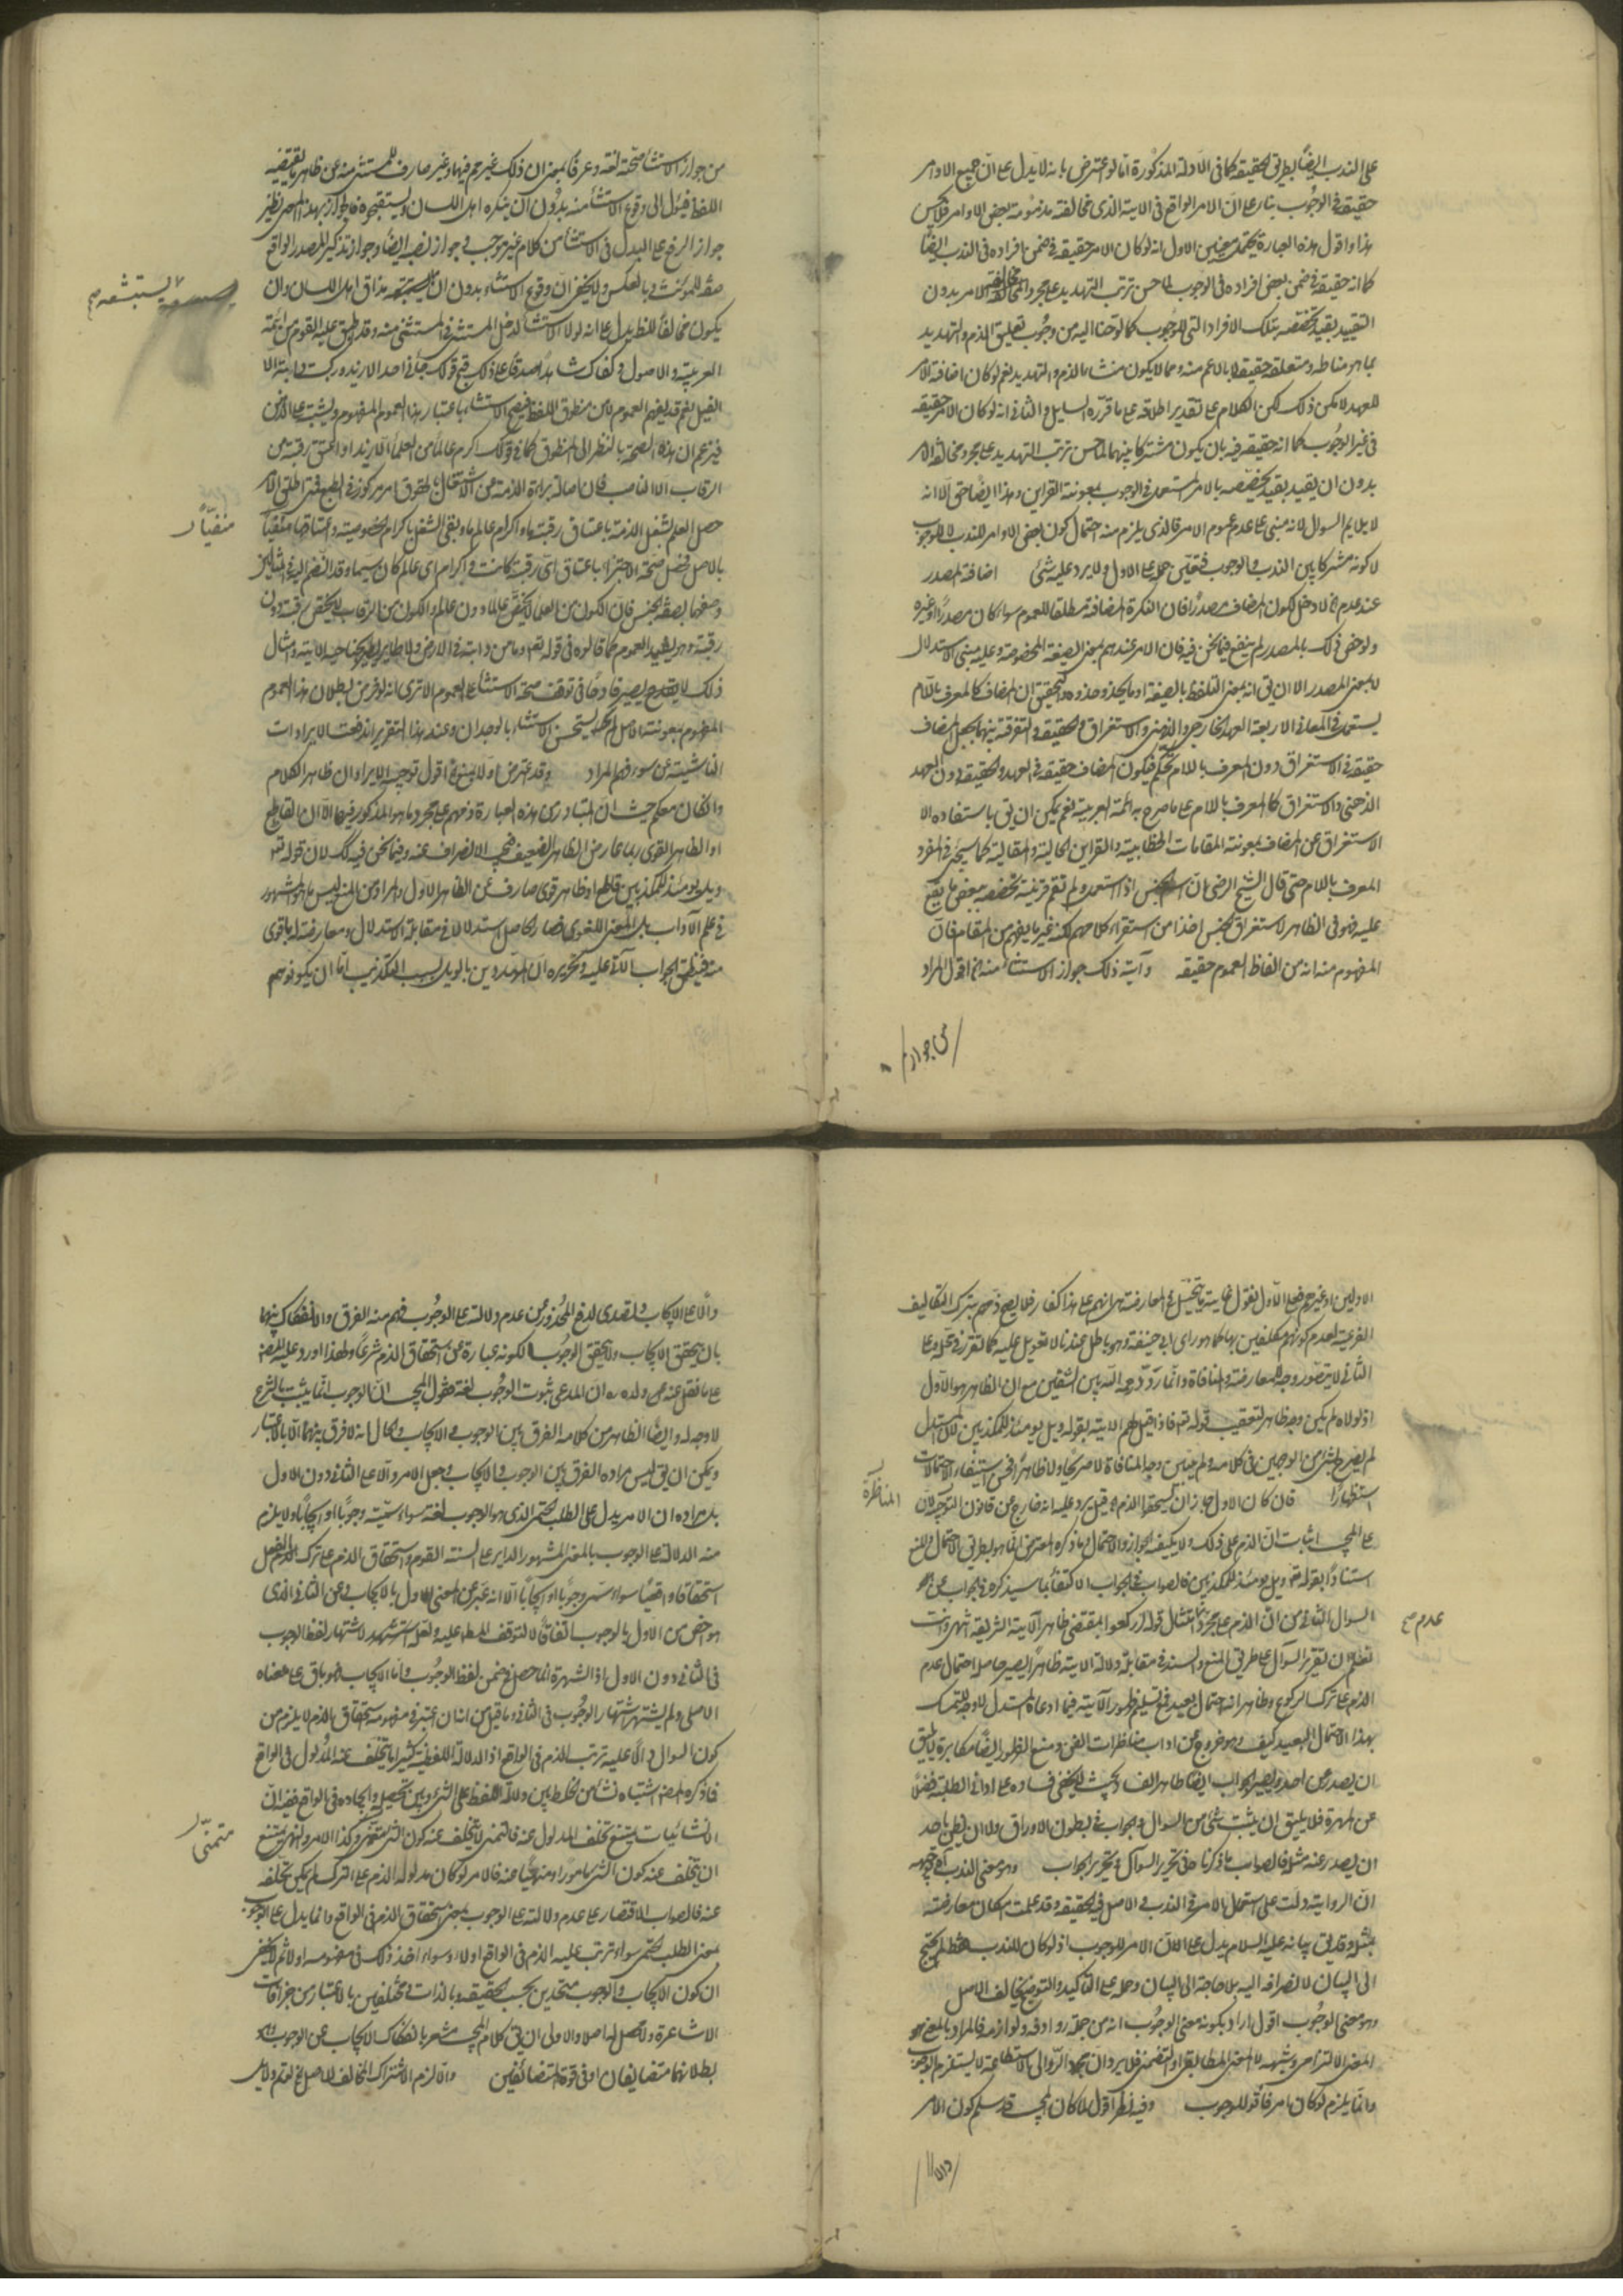 على الندب ايضا بطريق الحقيقة كما فى الادلة المذكورة اما لو اعترض بانه لا يدل على ان جميع الاوامر
حقيقة فى الوجوب بناء على ان الامر الواقع فى الاية الذى مخالفته مذمومة بعض الاوامر فلا يحسن
هذا واقول هذه العبارة يحتمل معنيين الاول انه لو كان الامر حقيقة فى ضمن افراده فى الندب ايضا
كما انه حقيقة فى ضمن بعض افراده فى الوجوب لما حسن ترتب التهديد على مجرد مخالفة الامر بدون
التقييد بقيد يخصصه بتلك الافراد التى للوجوب كما لوحنا اليه من وجوب تعليق الذم والتهديد
بما هو مناطه ومتعلقه حقيقة لا بالاعم منه ومما لا يكون منشاء للذم والتهديد نعم لو كان اضافة الامر
للعهد لامكن ذلك لكن الكلام على تقدير اطلاقه على ما قرره السايل والثانى انه لو كان الامر حقيقة
فى غير الوجوب كما انه حقيقة فيه بان يكون مشتركا بينهما لما حسن ترتب التهديد على مجرد مخالفة الامر
بدون ان يقيد بقيد يخصصه بالامر المستعمل فى الوجوب بمعونة القراين وهذا ايضا حق الا انه
لا يلايم السوال لانه مبنى على عدم عموم الامر فالذى يلزم منه احتمال كون بعض الاوامر للندب لا للوجوب
لا كونه مشتركا بين الندب والوجوب فتعين حمله على الاول ولا يرد عليه شئ اضافة المصدر
عند عدم لا دخل لكون المضاف مصدرا فان النكرة المضافة مطلقا للعموم سواء كان مصدرا او غيره
ولو خص ذلك بالمصدر لم ينفع فيما نحن فيه فان الامر عندهم بمعنى الصيغة المخصوصة وعليه مبنى الاستدلال
لا بمعنى المصدر الا ان يق انه بمعنى التلفظ بالصيغة والتحقيق ان المضاف كالمعرف باللام
يستعمل فى المعانى الاربعة العهد الخارجى والذهنى والاستغراق والحقيقة والتفرقة بينهما بجعل المضاف
حقيقة فى الاستغراق دون المعرف باللام تحكم فيكون المضاف حقيقة فى العهد والحقيقة دون العهد
الذهنى والاستغراق كالمعرف باللام على ما صرح به ائمة العربية نعم يمكن ان يق باستفادة الا
الاستغراق عن المضاف بمعونة المقامات الخطابية والقراين الحالية والمقالية كما سيجئ فى المفرد
المعرف باللام حتى قال الشيخ الرضى ان اسم الجنس اذا استعمل ولم تقم قرينة تخصصه ببعض ما يقع
عليه فهو فى الظاهر لاستغراق الجنس اخذا من استقراء كلامهم لكنه غير ما يفهم من المقام فان
المفهوم منه انه من الفاظ العموم حقيقة وآية ذلك جواز الاستثناء منه اقول المراد
من جواز
من جواز الاستثناء صحته لغة وعرفا بمعنى ان ذلك غير محرم فيها وغير صارف للمستثنى منه عن ظاهر ما يقتضيه
اللفظ فيؤل الى وقوع الاستثناء منه بدون ان ينكره اهل اللسان ويستقبحوه فالجواز بهذا المعنى نظير
جواز الرفع على البدل فى الاستثناء من كلام غير موجب وجواز نصبه ايضا وجواز تذكير المصدر الواقع
صفة للمؤنث وبالعكس ولا يخفى ان وقوع الاستثناء بدون ان يستبشعه مذاق اهل اللسان وان
يستبشعه صح
يكون مخالفا للفظ يدل على انه لولا الاستثناء لدخل المستثنى فى المستثنى منه وقد اطبق عليه القوم من ائمة
العربية والاصول وكفاك شاهد صدق على ذلك قبح قولك جاءنى احد الا زيد وركبت دابة الا
الفيل نعم قد يفهم العموم لا من منطوق اللفظ فيصح الاستثناء باعتبار هذا العموم المفهوم ويشتبه على الذهن
فيزعم ان هذه الصحة بالنظر الى المنطوق كما فى قولك اكرم عالما من العلماء الا زيدا او اعتق رقبة من
الرقاب الا الناصب فان اصالة براءة الذمة عن الاشتغال بالحقوق امر مركوز فى الطبع فمتى اطلق الامر
حصل العلم بشغل الذمة باعتاق رقبة ما واكرام عالم ما وبقى الشغل باكرام الخصوصية واعتاقها منفيا
منفيّا
بالاصل فحصل صحة الاجتزاء باعتاق اى رقبة كانت واكرام اى عالم كان سيما وقد انضم اليه فى المثالين
وصفها بصفة الجنس فان الكون من العلماء لا يخص عالما دون عالم والكون من الرقاب لا يختص برقبة دون
رقبة وهو يفيد العموم كما قالوه فى قوله تعم وما من دابة فى الارض ولا طاير يطير بجناحيه الاية وامثال
ذلك لا يقدح ولا يصير قادحا فى توقف صحة الاستثناء على العموم الا ترى انه لو فرض بطلان هذا العموم
المفهوم بمعونة الاصل لم يستحسن الاستثناء بالوجدان وعند هذا التقرير اندفعت الايرادات
الناشية عن سوء فهم المراد وقد اعترض اولا بمنع اقول توجيه الايراد ان ظاهر الكلام
وان كان معكم حيث ان المتبادر من هذه العبارة ذمهم على مجرد ما هو المذكور فيها الا ان القاطع
او الظاهر القوى ربما عارض الظاهر الضعيف فيجب الانصراف عنه وفيما نحن فيه كك لان قوله تع
ويل يومئذ للمكذبين قاطع او ظاهر قوى صارف عن الظاهر الاول والمراد من المنع ليس ما هو المشهور
فى علم الآداب بل المعنى اللغوى فصار الحاصل استدلالا فى مقابلة الاستدلال ومعارضة له باقوى
منه فينطبق الجواب الآتى عليه وتحريره ان المهددين بالويل بسبب التكذيب اما ان يكونوا هم
الاولين او غيرهم فعلى الاول نقول غاية ما يتخيل فى المعارضة انهم على هذا كفار فلا يصح ذمهم بترك التكاليف
الفرعية لعدم كونهم مكلفين بها كما هو راى ابى حنيفة وهو باطل عندنا لا تعويل عليه كما تقرر فى محله وعلى
الثانى لا يتصور وجه للمعارضة والمنافاة وانما ردد رحمه الله بين الشقين مع ان الظاهر هو الاول
اذ لولاه لم يكن وجه ظاهر لتعقيب قوله تع فاذا قيل لهم الاية بقوله ويل يومئذ للمكذبين لان المستدل
لم يصرح بشئ من الوجهين فى كلامه ولم يعين وجه المنافاة لا صريحا ولا ظاهرا فحسن استيفاء الاحتمالات
استظهارا فان كان الاول جاز ان يستحقوا الذم قيل يرد عليه انه خارج عن قانون التوجيه لان
المناظرة
على المجيب اثبات ان الذم على ذلك ولا يكفيه الجواز والاحتمال وما ذكره المعترض انما هو بطريق الاحتمال والمنع
استنادا بقوله تع ويل يومئذ للمكذبين فالصواب فى الجواب الاكتفاء بما سيذكره فى الجواب عن
السوال الثانى من ان الذم على مجرد عدم امتثال قوله اركعوا بمقتضى ظاهر الآية الشريفة انتهى وانت
عدم صح
تعلم ان تقرير السؤال على طريق المنع والسند فى مقابلة دلالة الاية ظاهرا يصير حاصله احتمال عدم
الذم على ترك الركوع وظاهر انه احتمال بعيد فمع تسليم ظهور الآية فيما ادعاه المستدل لا وجه للتمسك
بهذا الاحتمال البعيد كيف وهو خروج عن اداب مناظرات الفن ومنع الظهور ايضا مكابرة لا يليق
ان يصدر عن احد ويصير الجواب ايضا ظاهر الفساد بحيث لا يخفى فساده على ادانى الطلبة فضلا
عن المهرة فلا يليق ان يثبت شئ من السوال والجواب فى بطون الاوراق ولا ان يظن باحد
ان يصدر عنه مثله فالصواب ما ذكرنا حق تحرير السؤال وتحرير الجواب وهو معنى الندب اى توجيهه
ان الرواية دلت على استعمال الامر فى الندب والاصل فيه الحقيقة وقد علمت امكان معارضته
بمثله وقد يق بيانه عليه السلام يدل على ان الامر للوجوب اذ لو كان للندب فقط لم يحتج
الى البيان لانصرافه اليه بلا حاجة الى البيان وحمله على التاكيد والتوضيح يخالف الاصل
وهو معنى الوجوب اقول اراد بكونه معنى الوجوب انه من جملة روادفه ولوازمه فالمراد بالمعنى هو
المعنى الالتزامى وشبهه لا المعنى المطابقى او التضمنى فلا يرد ان مجرد الرد الى الاستطاعة لا يستلزم الوجوب
وانما يلزم لو كان بامر فاتوا للوجوب وفيه نظر اقول لما كان المجيب قد سلم كون الامر
دالا
دالا على الايجاب وتصدى لدفع المحذور عن عدم دلالته على الوجوب فهم منه الفرق والانفكاك بينهما
بان يتحقق الايجاب ولا يتحقق الوجوب لكونه عبارة عن استحقاق الذم شرعا ولهذا اورد عليه المصنف
على ما نقل عنه ولده ره ان المدعى ثبوت الوجوب لغة فقول المجيب ان الوجوب انما يثبت بالشرع
لا وجه له وايضا الظاهر من كلامه الفرق بين الوجوب والايجاب والحال انه لا فرق بينهما الا بالاعتبار
ويمكن ان يق ليس مراده الفرق بين الوجوب والايجاب وجعل الامر دالا على الثانى دون الاول
بل مراده ان الامر يدل على الطلب الحتمى الذى هو الوجوب لغة سواء سميته وجوبا او ايجابا ولا يلزم
منه الدلالة على الوجوب بالمعنى المشهور الداير على السنة القوم واستحقاق الذم على ترك الفعل
استحقاقا واقعيا سواء سمى وجوبا او ايجابا الا انه عبر عن المعنى الاول بالايجاب وعن الثانى الذى
هو اخص من الاول بالوجوب اتفاقا لا لتوقف المطلب عليه ولعله استشهد لاشتهار لفظ الوجوب
فى الثانى دون الاول اذ الشهرة انما حصل فى ضمن لفظ الوجوب واما الايجاب فهو باق على معناه
الاصلى ولم يشتهر اشتهار الوجوب فى الثانى وما قيل من ان ان اعتبر فى مفهومه استحقاق الذم لا يلزم من
كون السوال دالا عليه ترتب الذم فى الواقع اذ الدلالة اللفظية كثيرا ما يتخلف عنه المدلول فى الواقع
فما ذكره المصنف اشتباه نشاء من الخلط بين دلالة اللفظ على الشئ وبين تحصيله وايجاده فى الواقع ففيه ان
الانشائيات يمتنع تخلف المدلول عنه فالتمنى لا يتخلف عنه كون الشئ متمنى وكذا الامر والنهى يمتنع
متمنّى
ان يتخلف عنه كون الشئ مامورا او منهيا عنه فالامر لو كان مدلوله الذم على الترك لم يمكن تخلفه
عنه فالصواب الاقتصار على عدم دلالته على الوجوب بمعنى استحقاق الذم فى الواقع وانما يدل على الوجوب
بمعنى الطلب الحتمى سواء ترتب عليه الذم فى الواقع اولا وسواء اخذ ذلك فى مفهومه اولا ثم لا يخفى
ان كون الايجاب والوجوب متحدين بحسب الحقيقة وبالذات ومختلفين بالاعتبار من خرافات
الاشاعرة ولا محصل له اصلا والاولى ان يق كلام المجيب مشعر بانفكاك الايجاب عن الوجوب
بطلانه فانهما متضايفان او فى قوة المتضائفين والا لزم الاشتراك المخالف للاصل